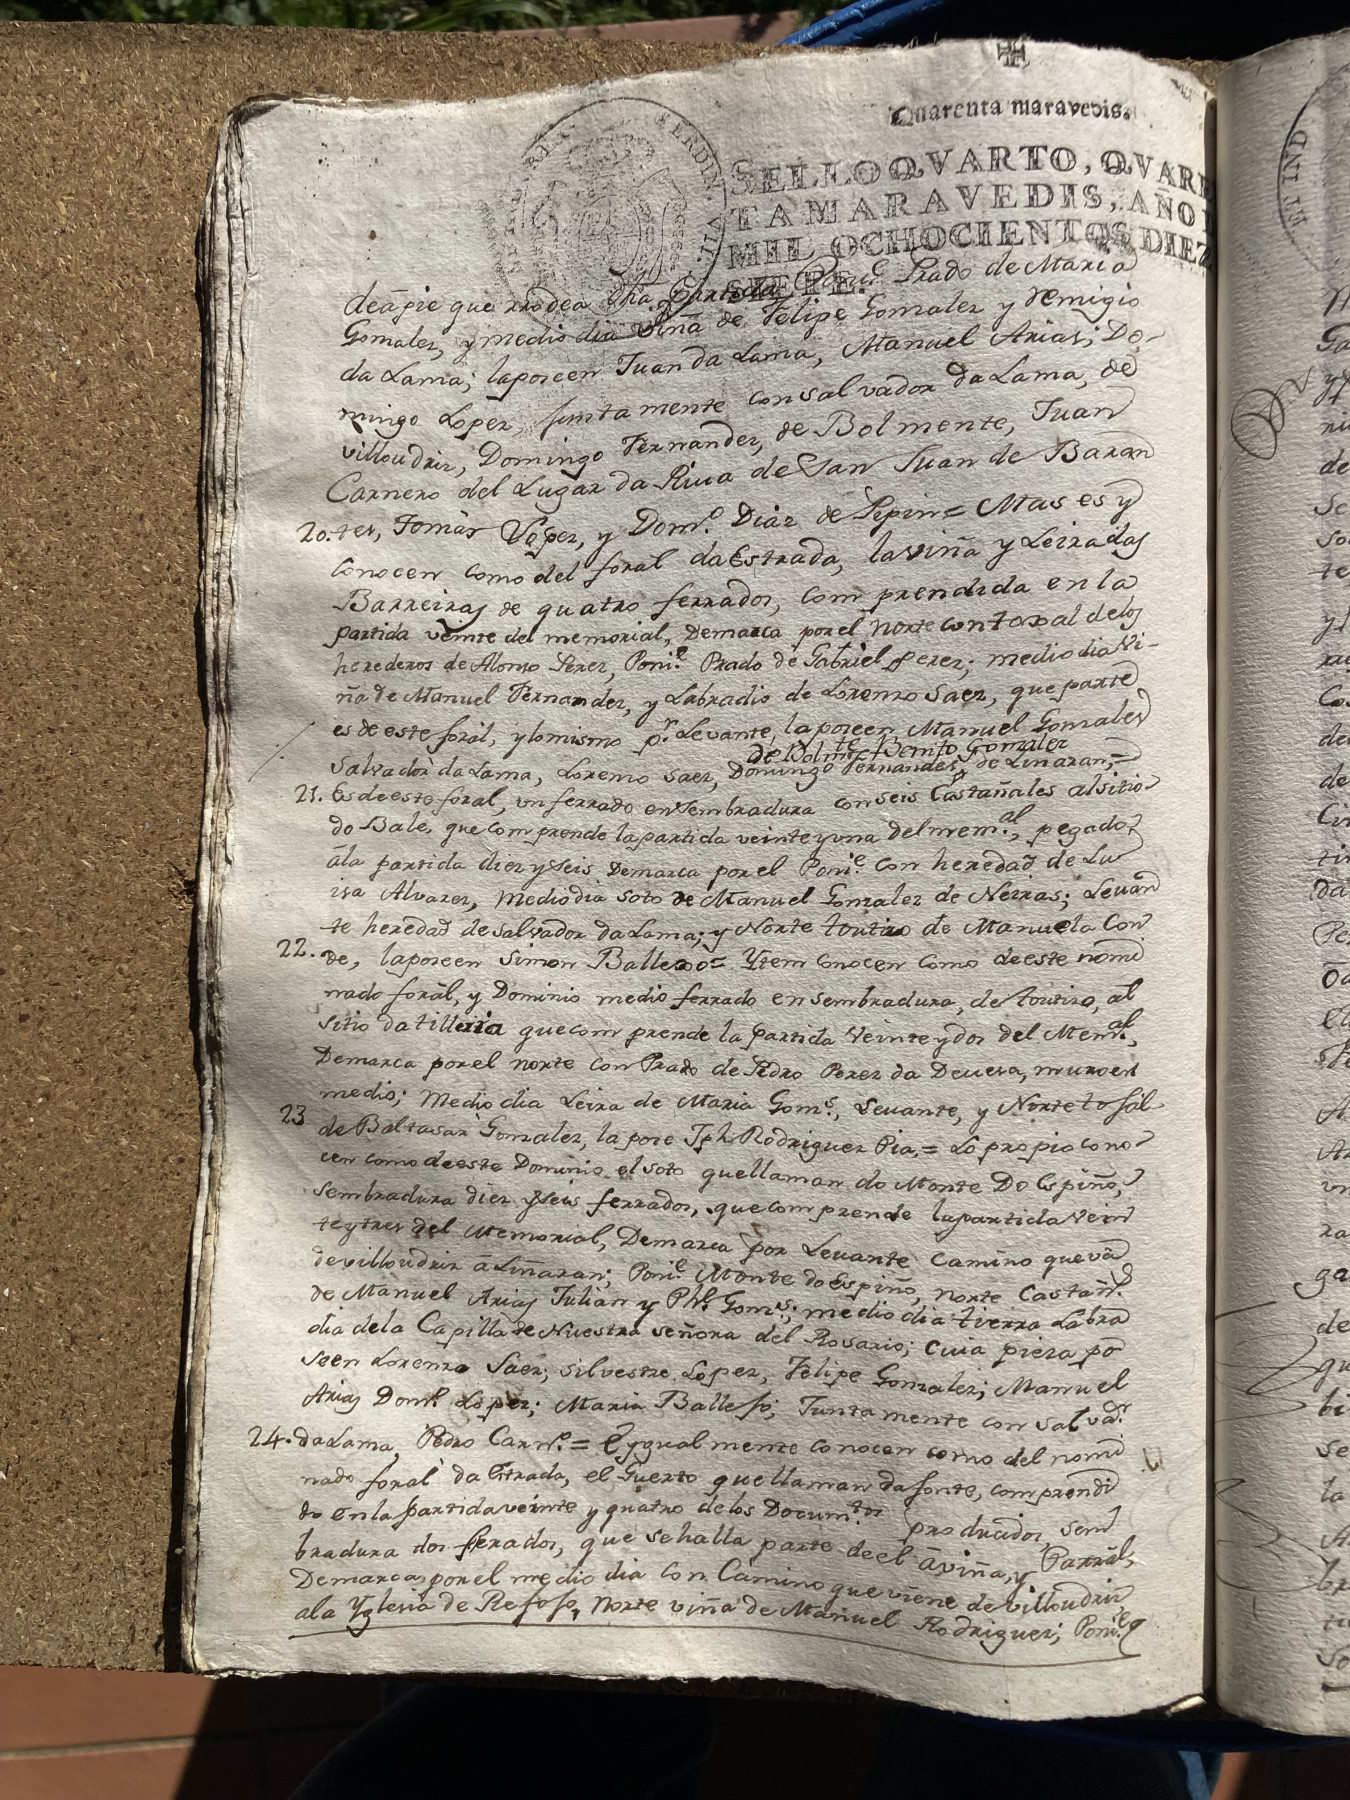 Quarenta maravedis.
SELLO QVARTO, QVARE
TA MARAVEDIS, AÑO
MIL OCHOCIENTOS DIEZ
SIETE.
FERDIN. VII.
deápie que rrodea dha partida Poni.e Prado de Maria
Gonzalez, y medio dia viña de Felipe Gonzalez y Remigio
da Lama; laposeen Juan da Lama, Manuel Arias; Do-
mingo Lopez, juntamente con salvador da Lama, de
villoudriz, Domingo Fernandez, de Bolmente, Juan
Carnero del Lugar da Riva de San Juan de Baran
20. tes, Tomàs Lopez, y Dom.o Diaz de Pepin = Mas es y
conocen como del foràl da Estrada, la viña y Leira das
Barreiras de quatro ferrados, comprendida en la
partida veinte del memorial, Demarca por el Norte con toxal delos
herederos de Alonso Perez, Poni.e Prado de Gabriel Perez; mediodia Vi-
ña de Manuel Fernandez, y Labradio de Lorenzo Saez, que parte
es de este foràl, y lo mismo p.r Levante, laposeen Manuel Gonzalez
de Bolm.te Benito Gonzalez
Salvador da Lama, Lorenzo Saez, Domingo Fernandez, de Liñaran, =
21. Es deesto foral, un ferrado en Sembradura con seis Castañales al sitio
do Bale, que comprende la partida veinte y una del mem.al, pegado
àla partida diez y seis Demarca por el Poni.e con heredad de Lu
isa Alvarez, Mediodia soto de Manuel Gonzalez de Neiras; Levan
te heredad de salvador da Lama; y Norte toutizo de Manuela Con
22. de, laposeen Simon Ballesso = Ytem conocen como de este nomi
nado foràl, y Dominio medio ferrado en sembradura, de toutizo, al
sitio da tilleria que comprende la partida Veinte y dos del Mem.al,
Demarca por el norte con Prado de Pedro Perez da Devesa, muro en
medio; Medio dia Leira de Maria Gom.s, Levante, y Norte
23 de Baltasar Gonzalez, la posee Jph Rodriguez Pia. = Lo propio cono
cen como de este Dominio el soto que llaman do Monte Do Espiño,
Sembradura diez y seis ferrados, que comprende la partida vein
te y tres del Memorial, Demarca por Levante Camino que và
de villoudriz à Liñaran; Poni.e Monte do Espiño, norte Castañ.s
de Manuel Arias Julian y Ph.e Gom.s; medio dia tierra Labra
dia dela Capilla de Nuestra señora del Rosario; cuia pieza po
seen Lorenzo Saez; Silvestre Lopez, Felipe Gonzalez; Manuel
Arias Dom.o Lopez; Maria Ballesso; Juntamente con salva.r
24. da Lama, Pedro Carn.o = E ygualmente conocen como del nomi
nado foral da Estrada, el Guerto que llaman da fonte, comprendi
do en la partida veinte y quatro delos Docum.tos producidos, sem
bradura dos ferados, que sehalla parte de el àviña, y Parràl,
Demarca por el medio dia con Camino que viene de villoudriz,
ala Yglesia de Refoso, Norte viña de Manuel Rodriguez; Poni.e